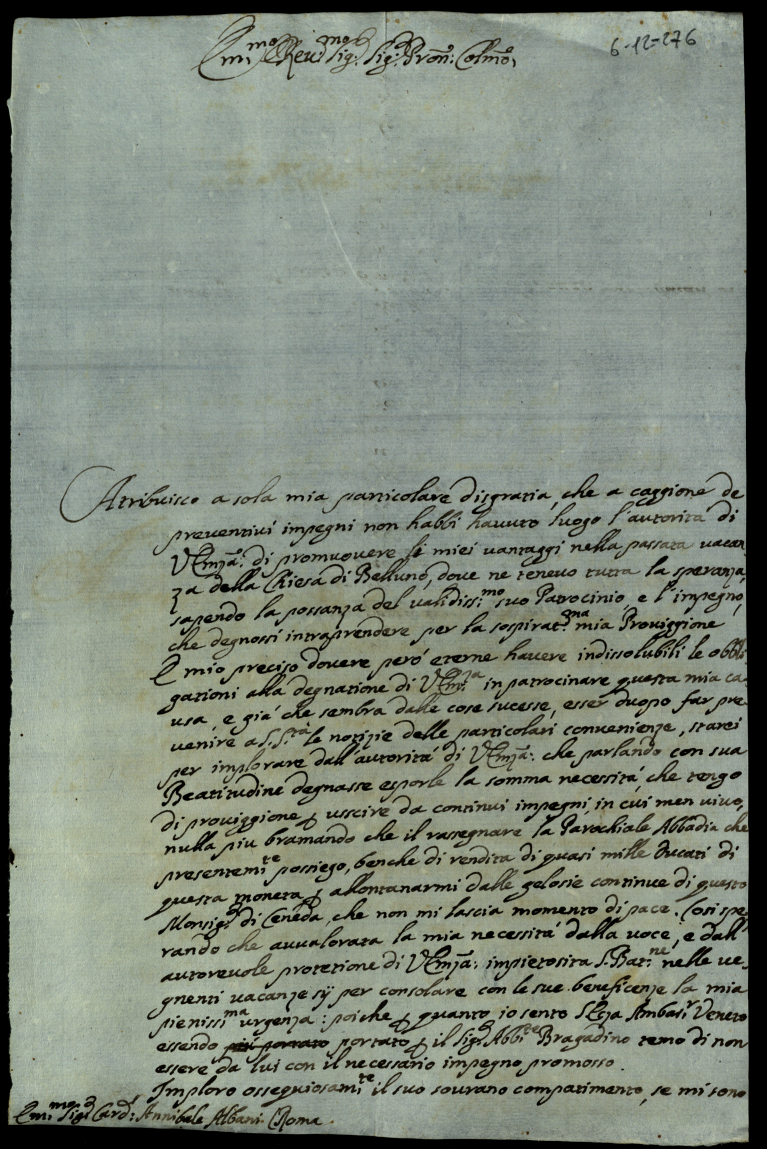 Em:mo Rev:mo Sig.r Sig.r Pron: Colmo,
6-12-276
Atribuisco a sola mia particolare disgratia, che a caggione de
preventivi impegni non habbi havuto luogo l'autorità di
VEmza: di promuovere li miei vantaggi nella passata vacan
za della Chiesa di Belluno, dove ne tenevo tutta la speranza,
sapendo la possanza del validissi:mo suo Patrocinio, e l'impegno,
che degnossi intraprendere per la sospirat:ma mia Proviggione
È mio preciso dovere però eterne havere indissolubili le obbli
gationi alla degnatione di VEm:za in patrocinare questa mia ca
usa, e già che sembra dalle cose sucesse, esser duopo far pre
venire a S: S:tà le notizie delle particolari convenienze, starei
per implorare dall'autorità di VEmza: che parlando con sua
Beatitudine degnasse esporle la somma necessità, che tengo
di proviggione p uscire da continui impegni, in cui men vivo,
nulla più bramando che il rassegnare la Parochiale Abbadia che
presentem:te possiego, benche di rendita di quasi mille Ducati di
questa moneta, p allontanarmi dalle gelosie continue di questo
Monsig:r di Ceneda, che non mi lascia momento di pace. Cosi spe
rando che avvalorata la mia necessità dalla voce, e dall'
autorevole protetione di VEmza: impietosita S. Bat:ne nelle ve
gnenti vacanze sij per consolare con le sue beneficenze la mia
pienissi:ma urgenza: poiche p quanto io sento S:Eza Ambas:r Veneto
essendo più portato portato p il Sig:r Abb:te Bragadino temo di non
essere da lui con il necessario impegno promosso.
Imploro ossequiosam:te il suo sovrano compatimento, se mi sono
Em:mo Sig:r Card: Annibale Albani. Roma.